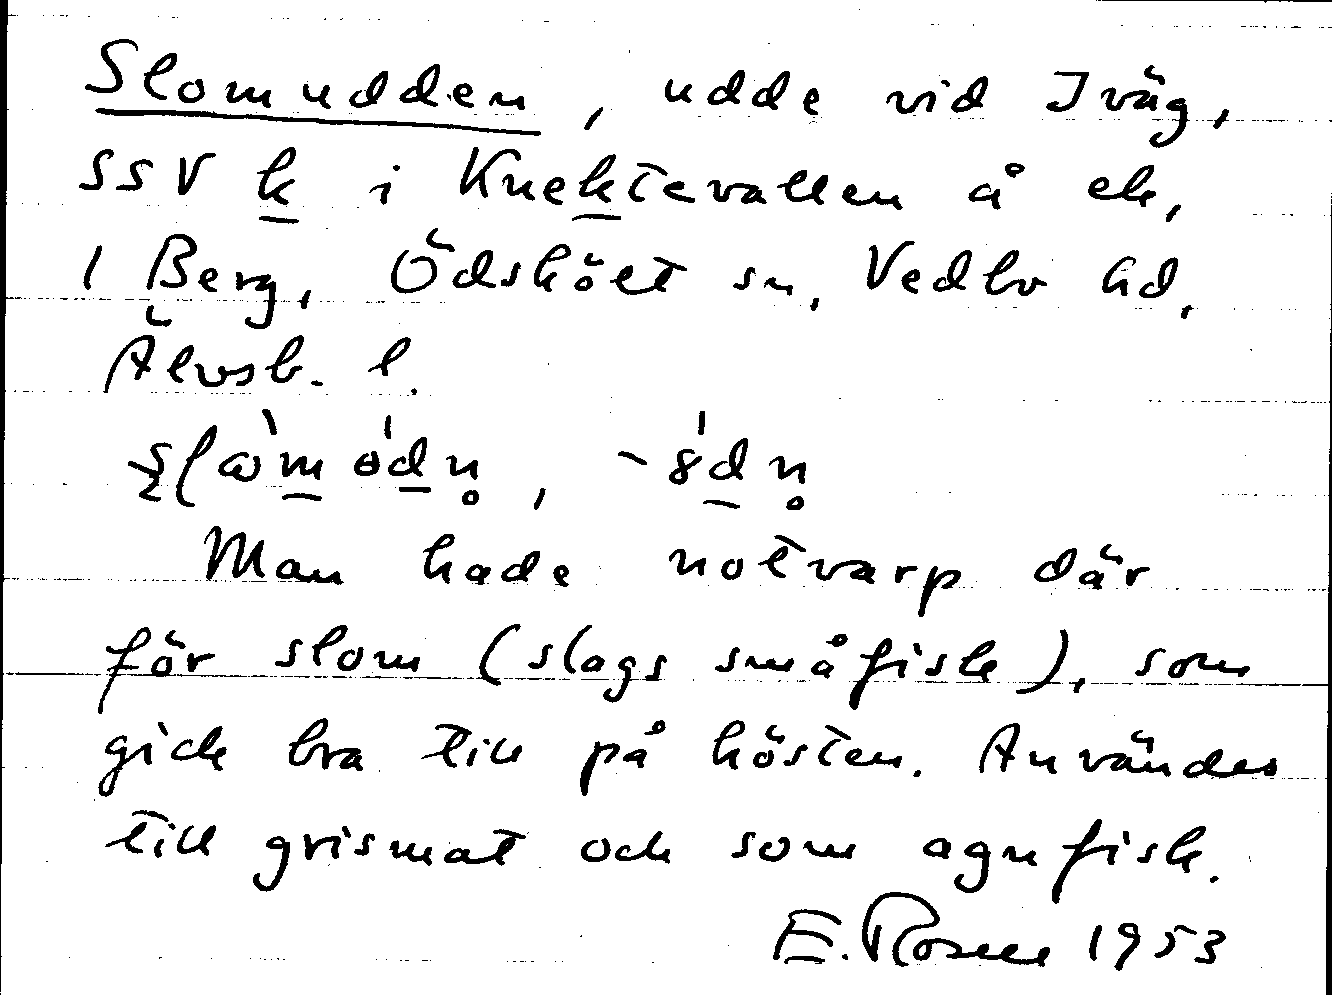 Slomudden, udde vid Iväg,
SSV k i Knektevallen å ek,
1 Berg, Ödskölt sn, Vedbo hd,
Älvsb. l.
Man hade notvarp där
för slom (slags småfisk), som
gick bra till på hösten. Användes
till grismat och som agnfisk.
E. Rosell 1953